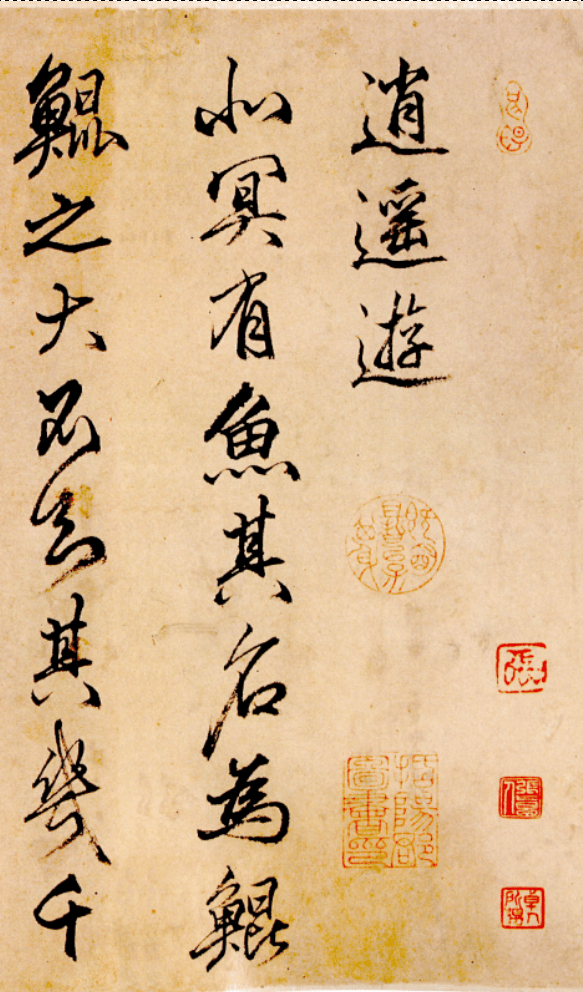 逍遙遊
北冥有魚其名為鯤
鯤之大不知其幾千